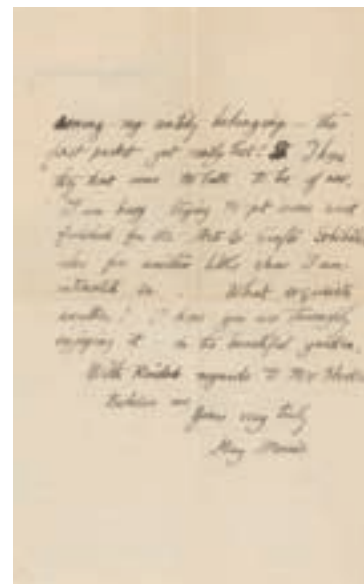 among my untidy belongings — the
last packet got really lost! I hope
they but were not late to be of use.
I am busy trying to get some work
finished for the Arts & Crafts Exhibition
also for another little show I am
interested in. What exquisite
weather! I hope you are thoroughly
enjoying it in the beautiful garden.
With kindest regards to Mrs
believe me
Yours very truly
May Morris